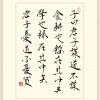 子曰君子謀道不謀
食耕也餒在其中矣
學也祿在其中矣
君子憂道不憂貧